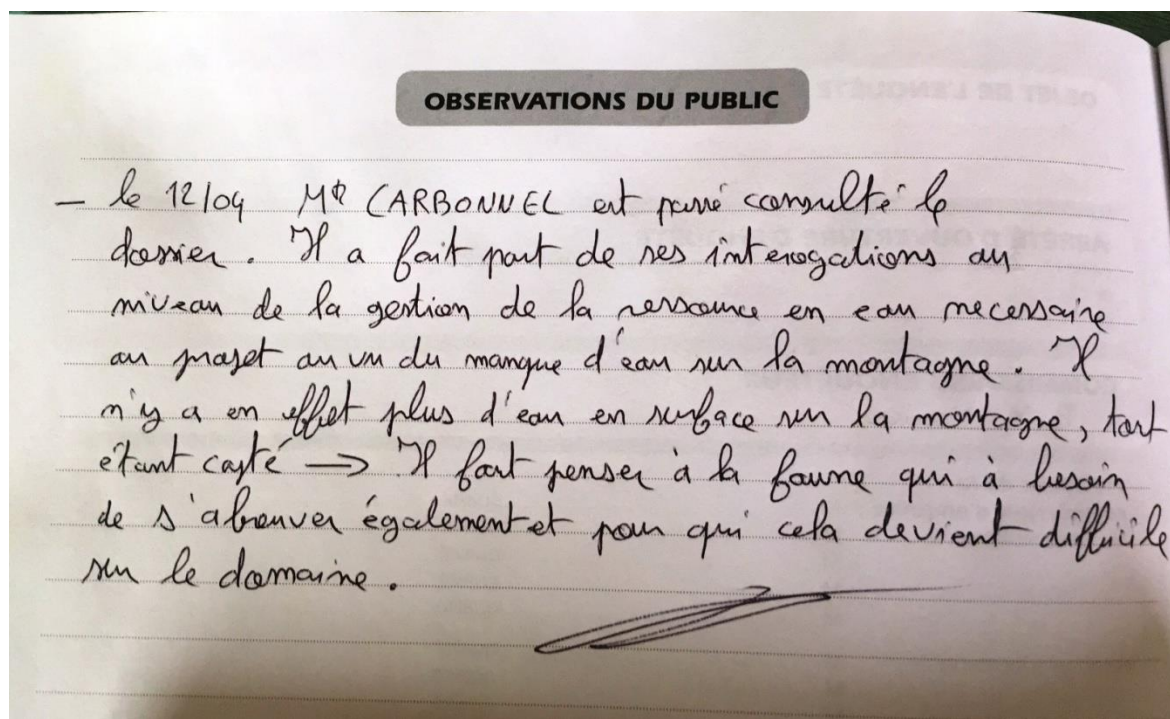 OBSERVATIONS DU PUBLIC
– le 12/04 Mr CARBONNEL est passé consulté le
dossier. Il a fait part de ses interogations au
niveau de la gestion de la ressource en eau necessaire
au projet au vu du manque d'eau sur la montagne. Il
n'y a en effet plus d'eau en surface sur la montagne, tout
étant capté → Il faut penser à la faune qui à besoin
de s'abreuver également et pour qui cela devient difficile
sur le domaine.